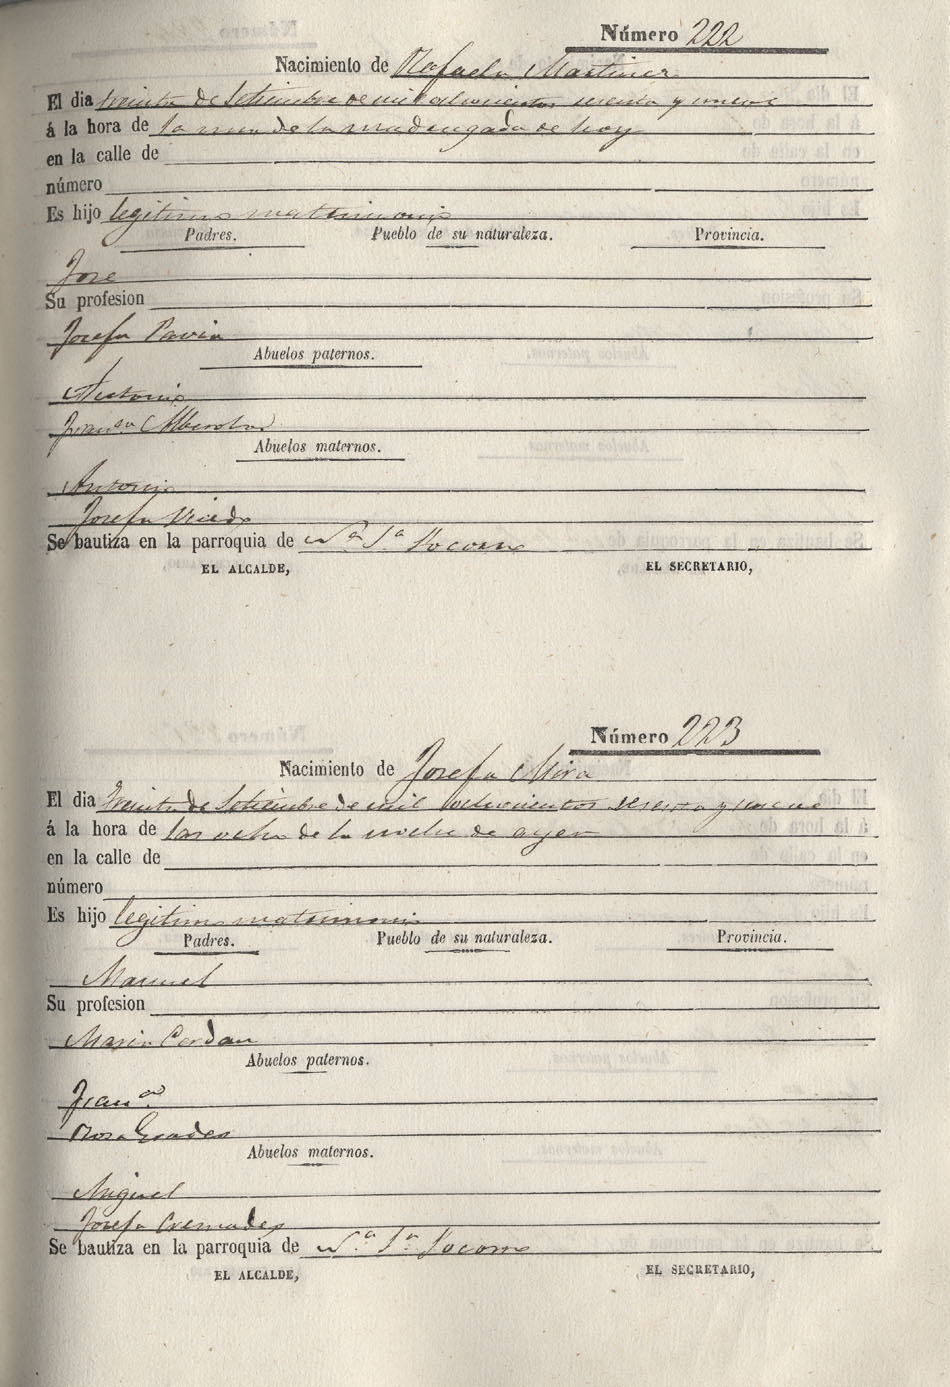 Número 222
Nacimiento de Rafaela Martinez
El dia treinta de Setiembre de mil ochocientos sesenta y nueve
á la hora de la una de la madrugada de hoy
en la calle de
número
Es hijo legitimo matrimonio
Padres. Pueblo de su naturaleza. Provincia.
Jose
Su profesion
Josefa Pavia
Abuelos paternos.
Antonio
Franca Alberola
Abuelos maternos.
Antonio
Josefa Viedo
Se bautiza en la parroquia de Na Sa Socorro
EL ALCALDE, EL SECRETARIO,
Número 223
Nacimiento de Josefa Mira
El dia treinta de Setiembre de mil ochocientos sesenta y nueve
á la hora de las ocho de la noche de ayer
en la calle de
número
Es hijo legitimo matrimonio
Padres. Pueblo de su naturaleza. Provincia.
Manuel
Su profesion
Maria Cerdan
Abuelos paternos.
Franco
Rosa
Abuelos maternos.
Miguel
Josefa Cremades
Se bautiza en la parroquia de Na Sa Socorro
EL ALCALDE, EL SECRETARIO,